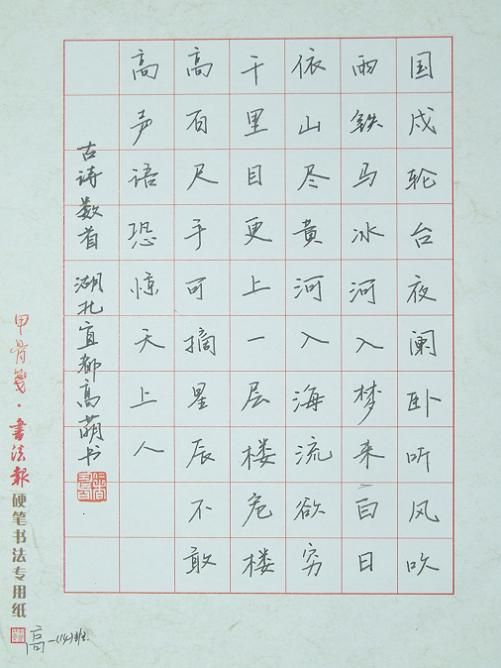 国戍轮台夜阑卧听风吹
雨铁马冰河入梦来白日
依山尽黄河入海流欲穷
千里目更上一层楼危楼
高百尺手可摘星辰不敢
高声语恐惊天上人
古诗数首 湖北宜都高萌书
甲骨笺·书法报硬笔书法专用纸
高一(14)班